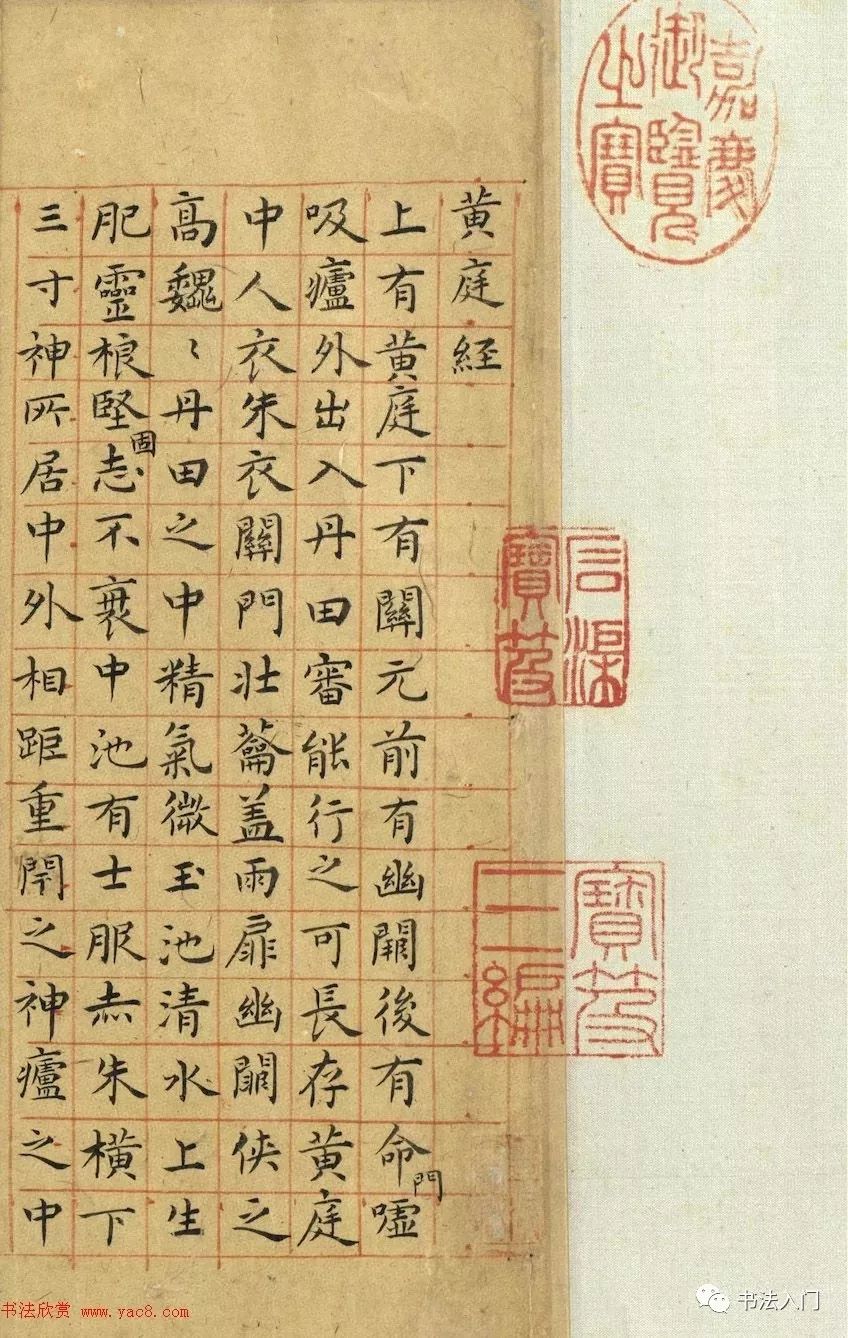 黃庭經
上有黃庭下有關元前有幽闕後有命門噓
吸廬外出入丹田審能行之可長存黃庭
中人衣朱衣關門壯蘥盖兩扉幽闕俠之
高魏〻丹田之中精氣微玉池清水上生
肥靈根堅固志不衰中池有士服赤朱橫下
三寸神所居中外相距重閇之神廬之中
嘉慶
御覽
之寶
石渠
寶笈
寶笈
三編
书法欣赏 www.yac8.com
书法入门